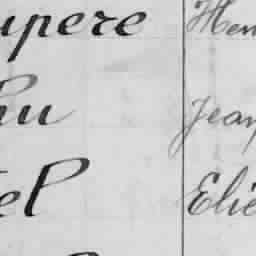 upere Hen
hu Jean
tel Elie